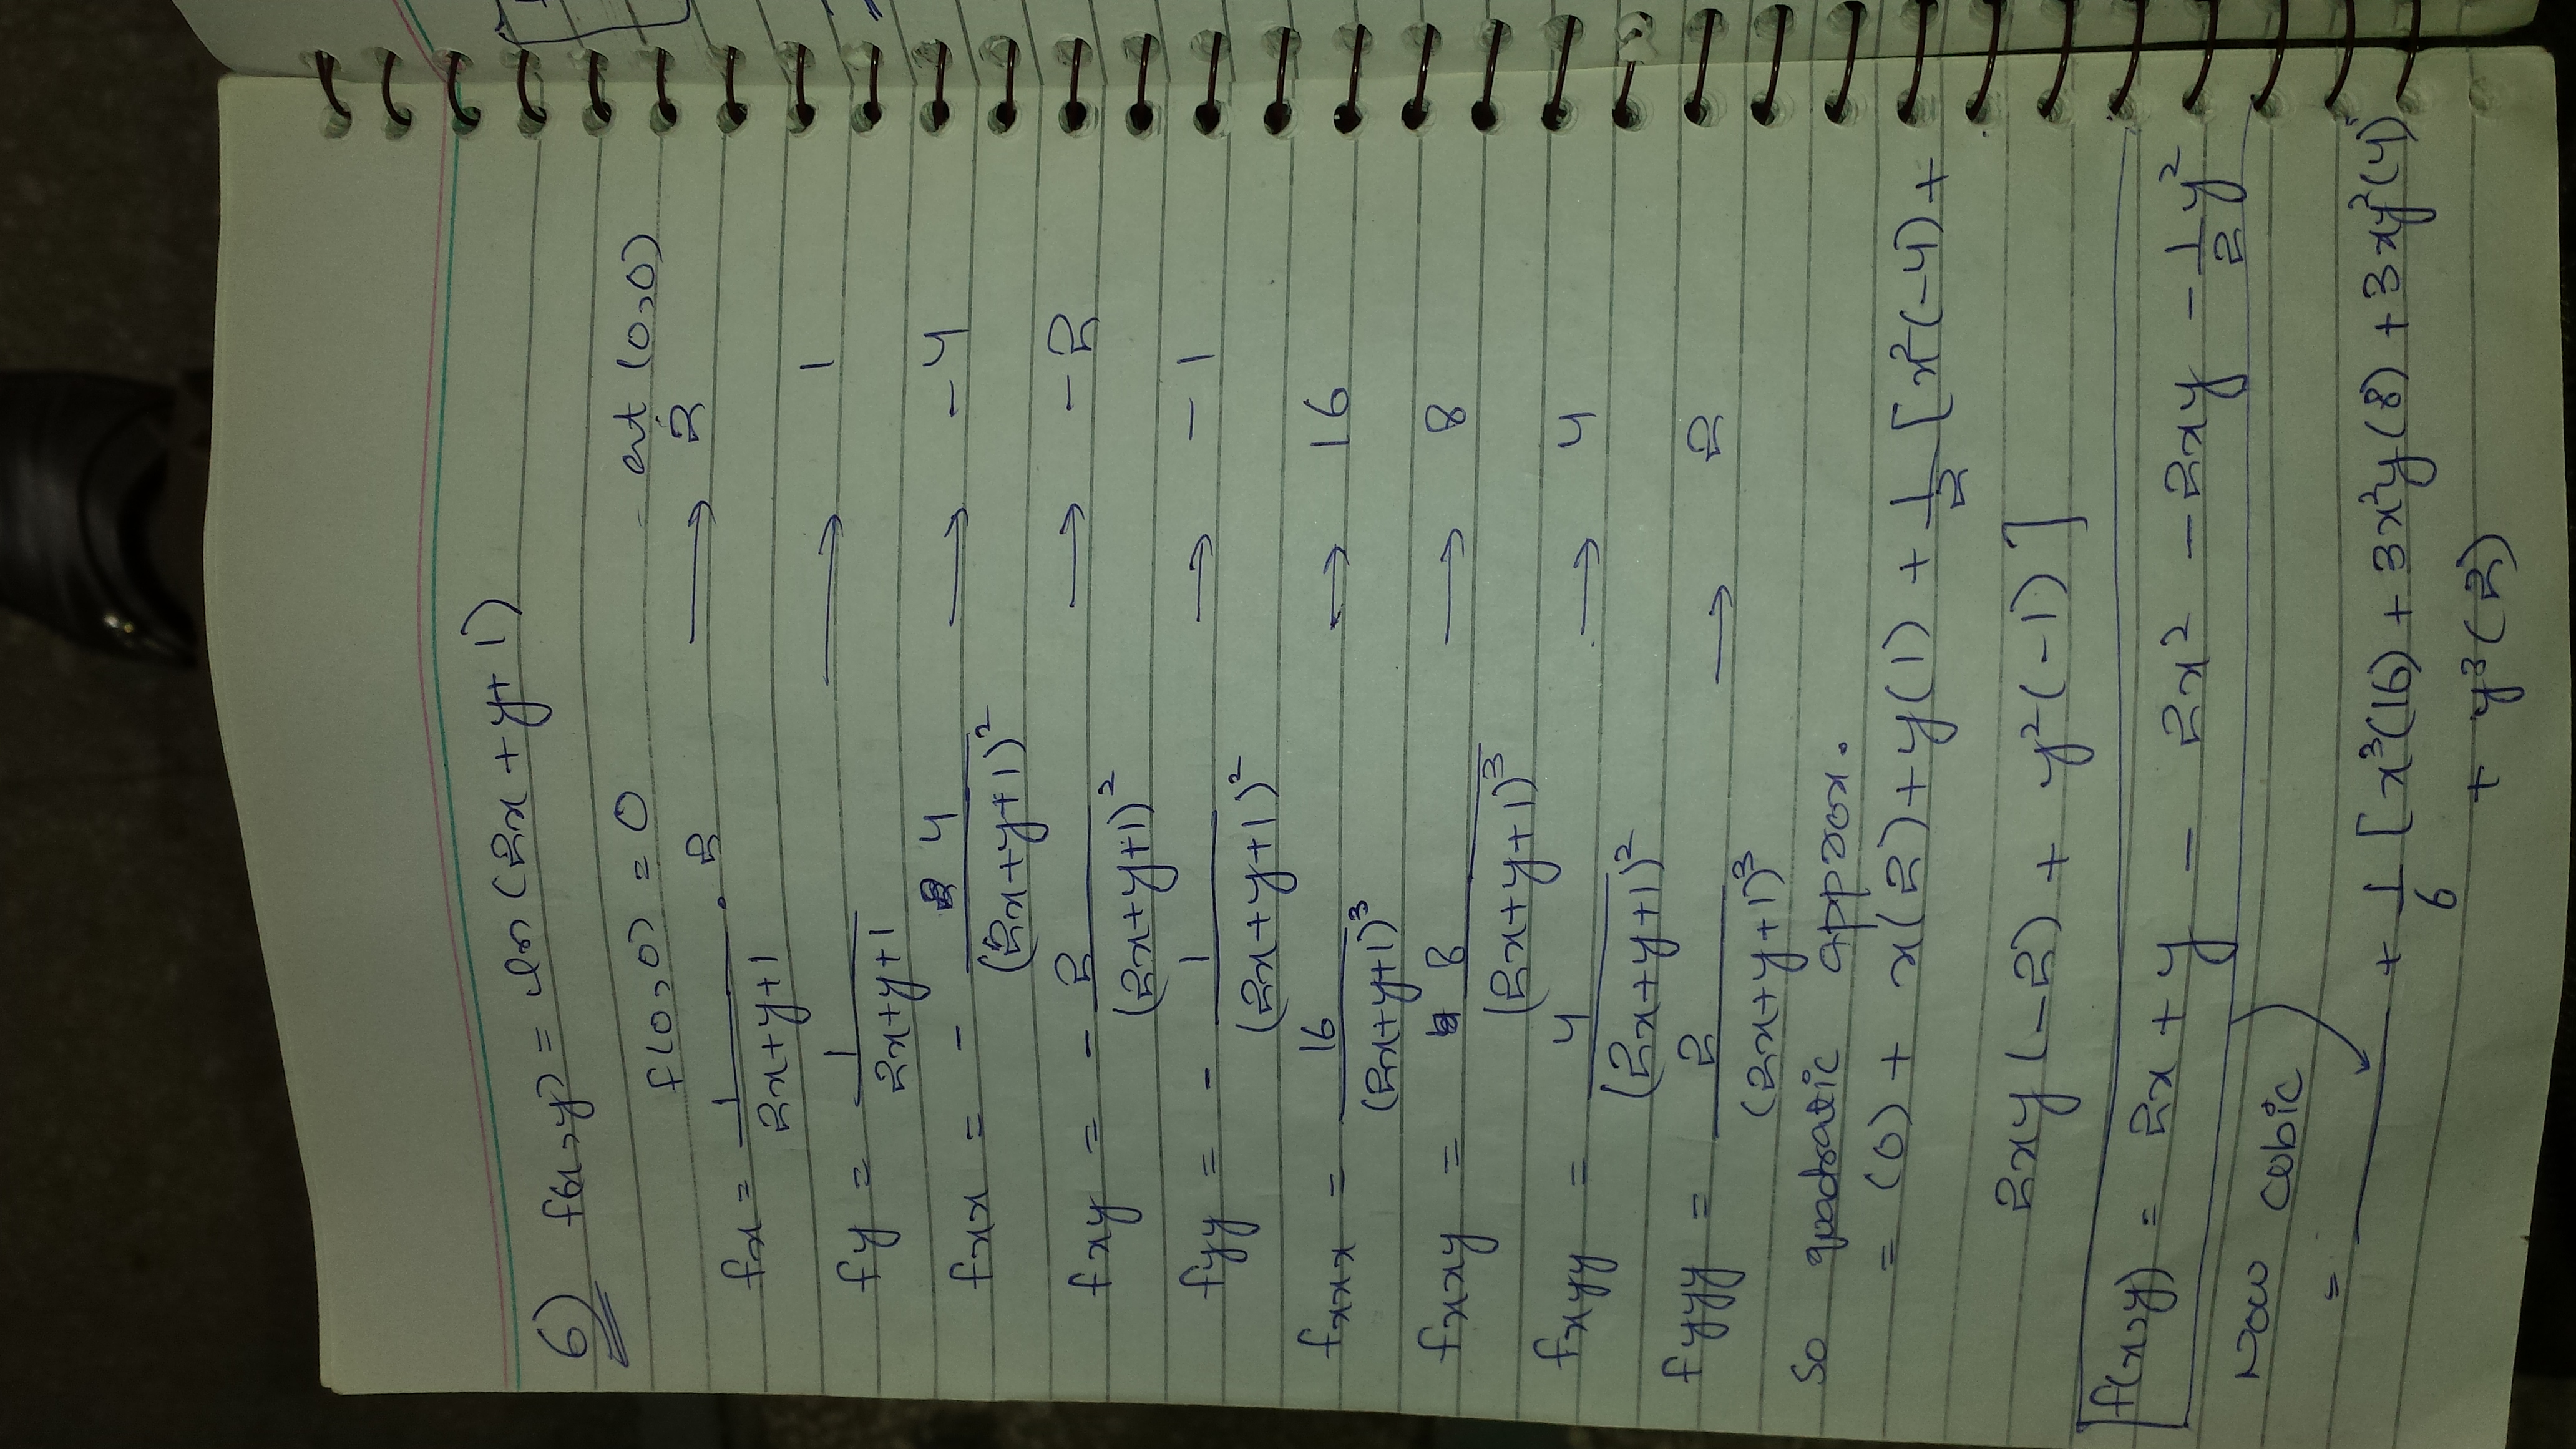 6) f(x,y) = ln (2x + y + 1)
f(0,0) = 0 at (0,0)
fx = 1/(2x+y+1) . 2 → 2
fy = 1/(2x+y+1) → 1
fxx = - 4/(2x+y+1)² → -4
fxy = - 2/(2x+y+1)² → -2
fyy = - 1/(2x+y+1)² → -1
fxxx = 16/(2x+y+1)³ → 16
fxxy = 8/(2x+y+1)³ → 8
fxyy = 4/(2x+y+1)² → 4
fyyy = 2/(2x+y+1)³ → 2
So quadratic approx.
= (0) + x(2) + y(1) + 1/2 [x²(-4) +
2xy(-2) + y²(-1)]
f(x,y) = 2x + y - 2x² - 2xy - 1/2 y²
Now cubic
= + 1/6 [x³(16) + 3x²y(8) + 3xy²(4)
+ y³(2)